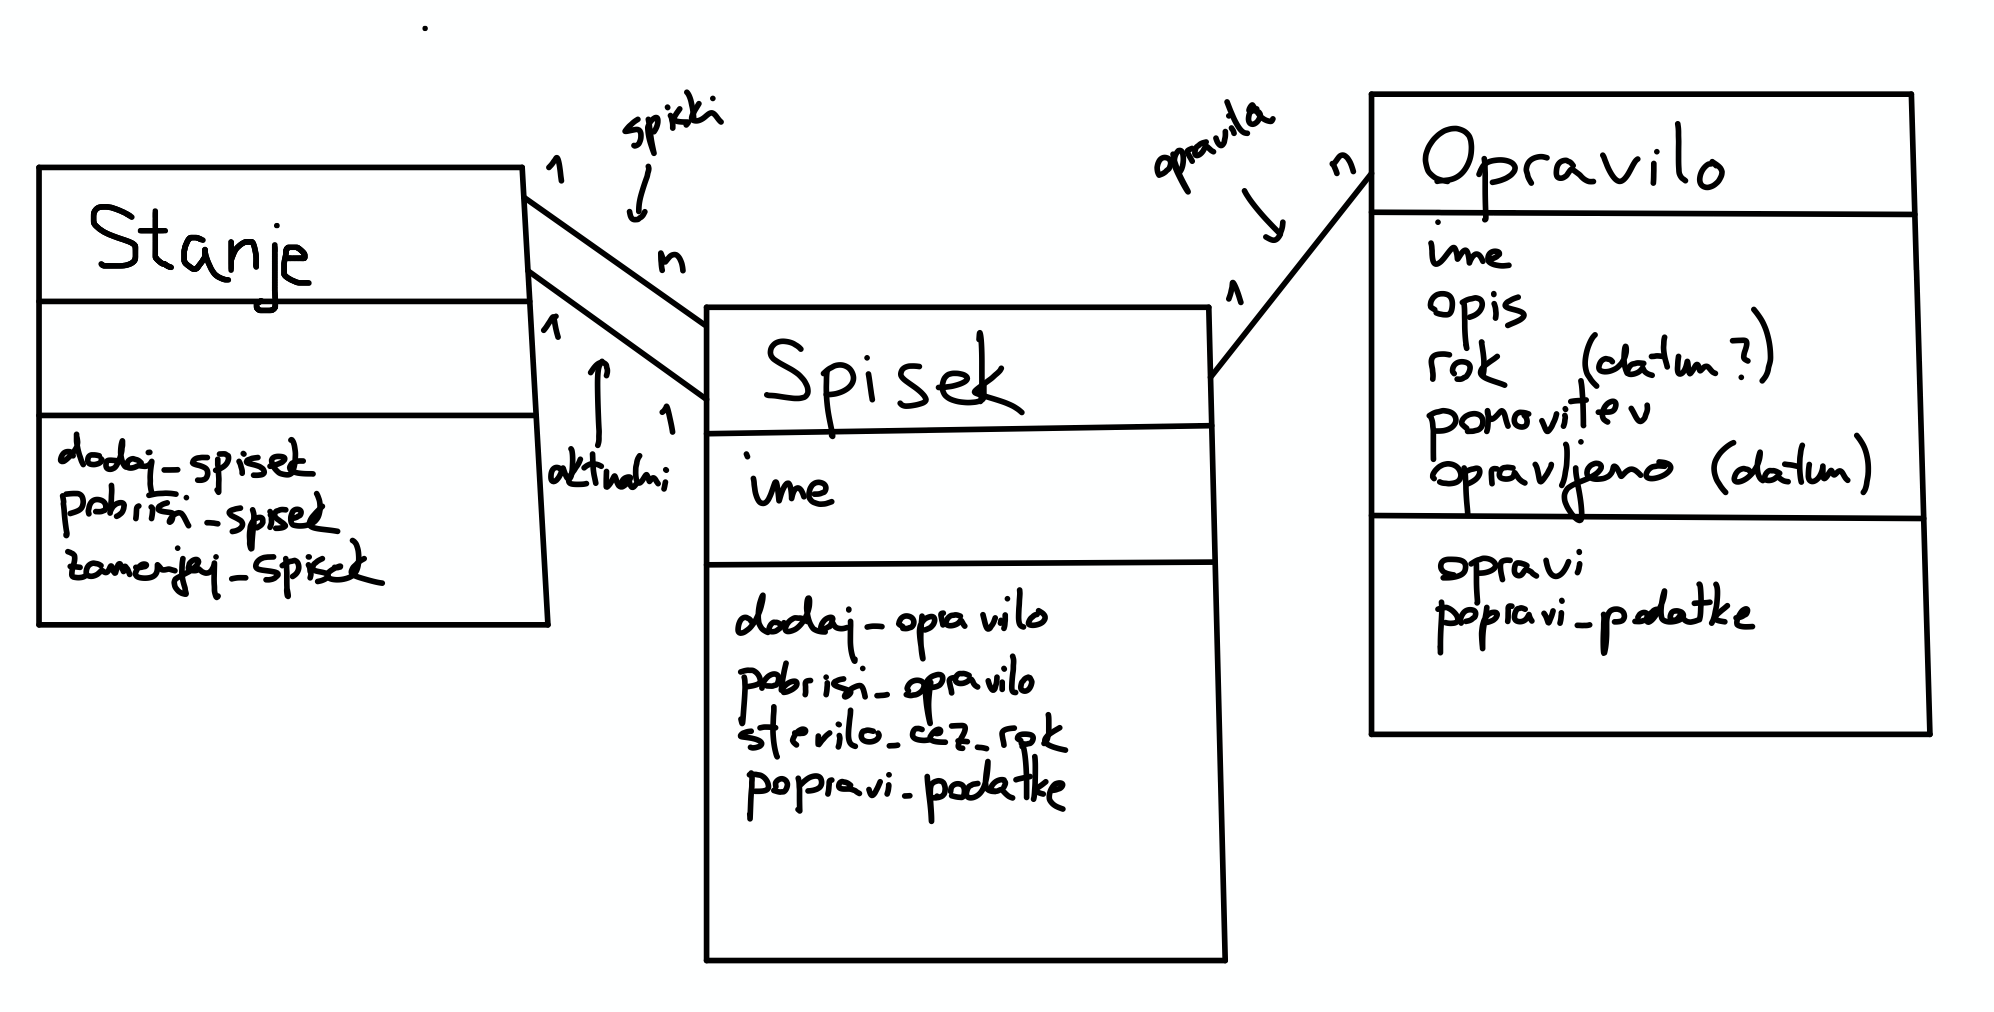 Stanje
dodaj_spisek
pobriši_spisek
zamenjaj_spisek
1
spiski
n
1
aktualni
1
Spisek
ime
dodaj_opravilo
pobriši_opravilo
stevilo_cez_rok
popravi_podatke
opravila
1
n
Opravilo
ime
opis
rok (datum?)
ponovitev
opravljeno (datum)
opravi
popravi_podatke